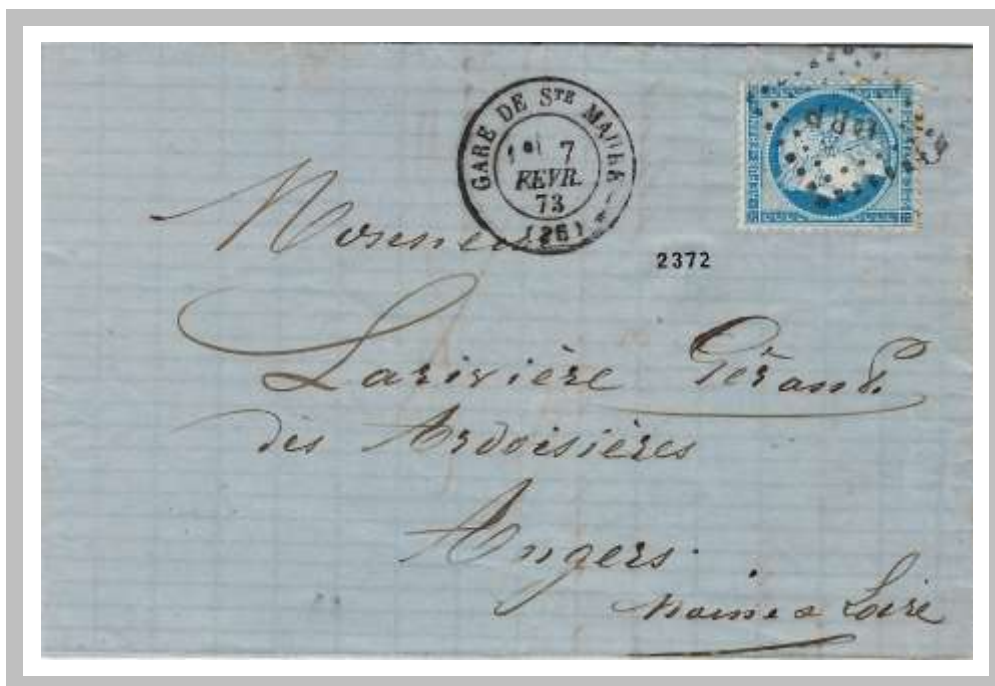 GARE DE STE MAURE
7
FEVR.
73
(36)
2372
Monsieur
Larivière Gérant
des Ardoisières
Angers
Maine & Loire